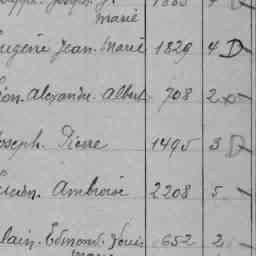 Joseph. J.
marie
Eugène Jean. Marie 1829 4 D
Léon. Alexandre. Albert 708 2
Joseph. Pierre 1495 3 D
Ambroise 2208 5
Alain. Edmond. Louis 652 2